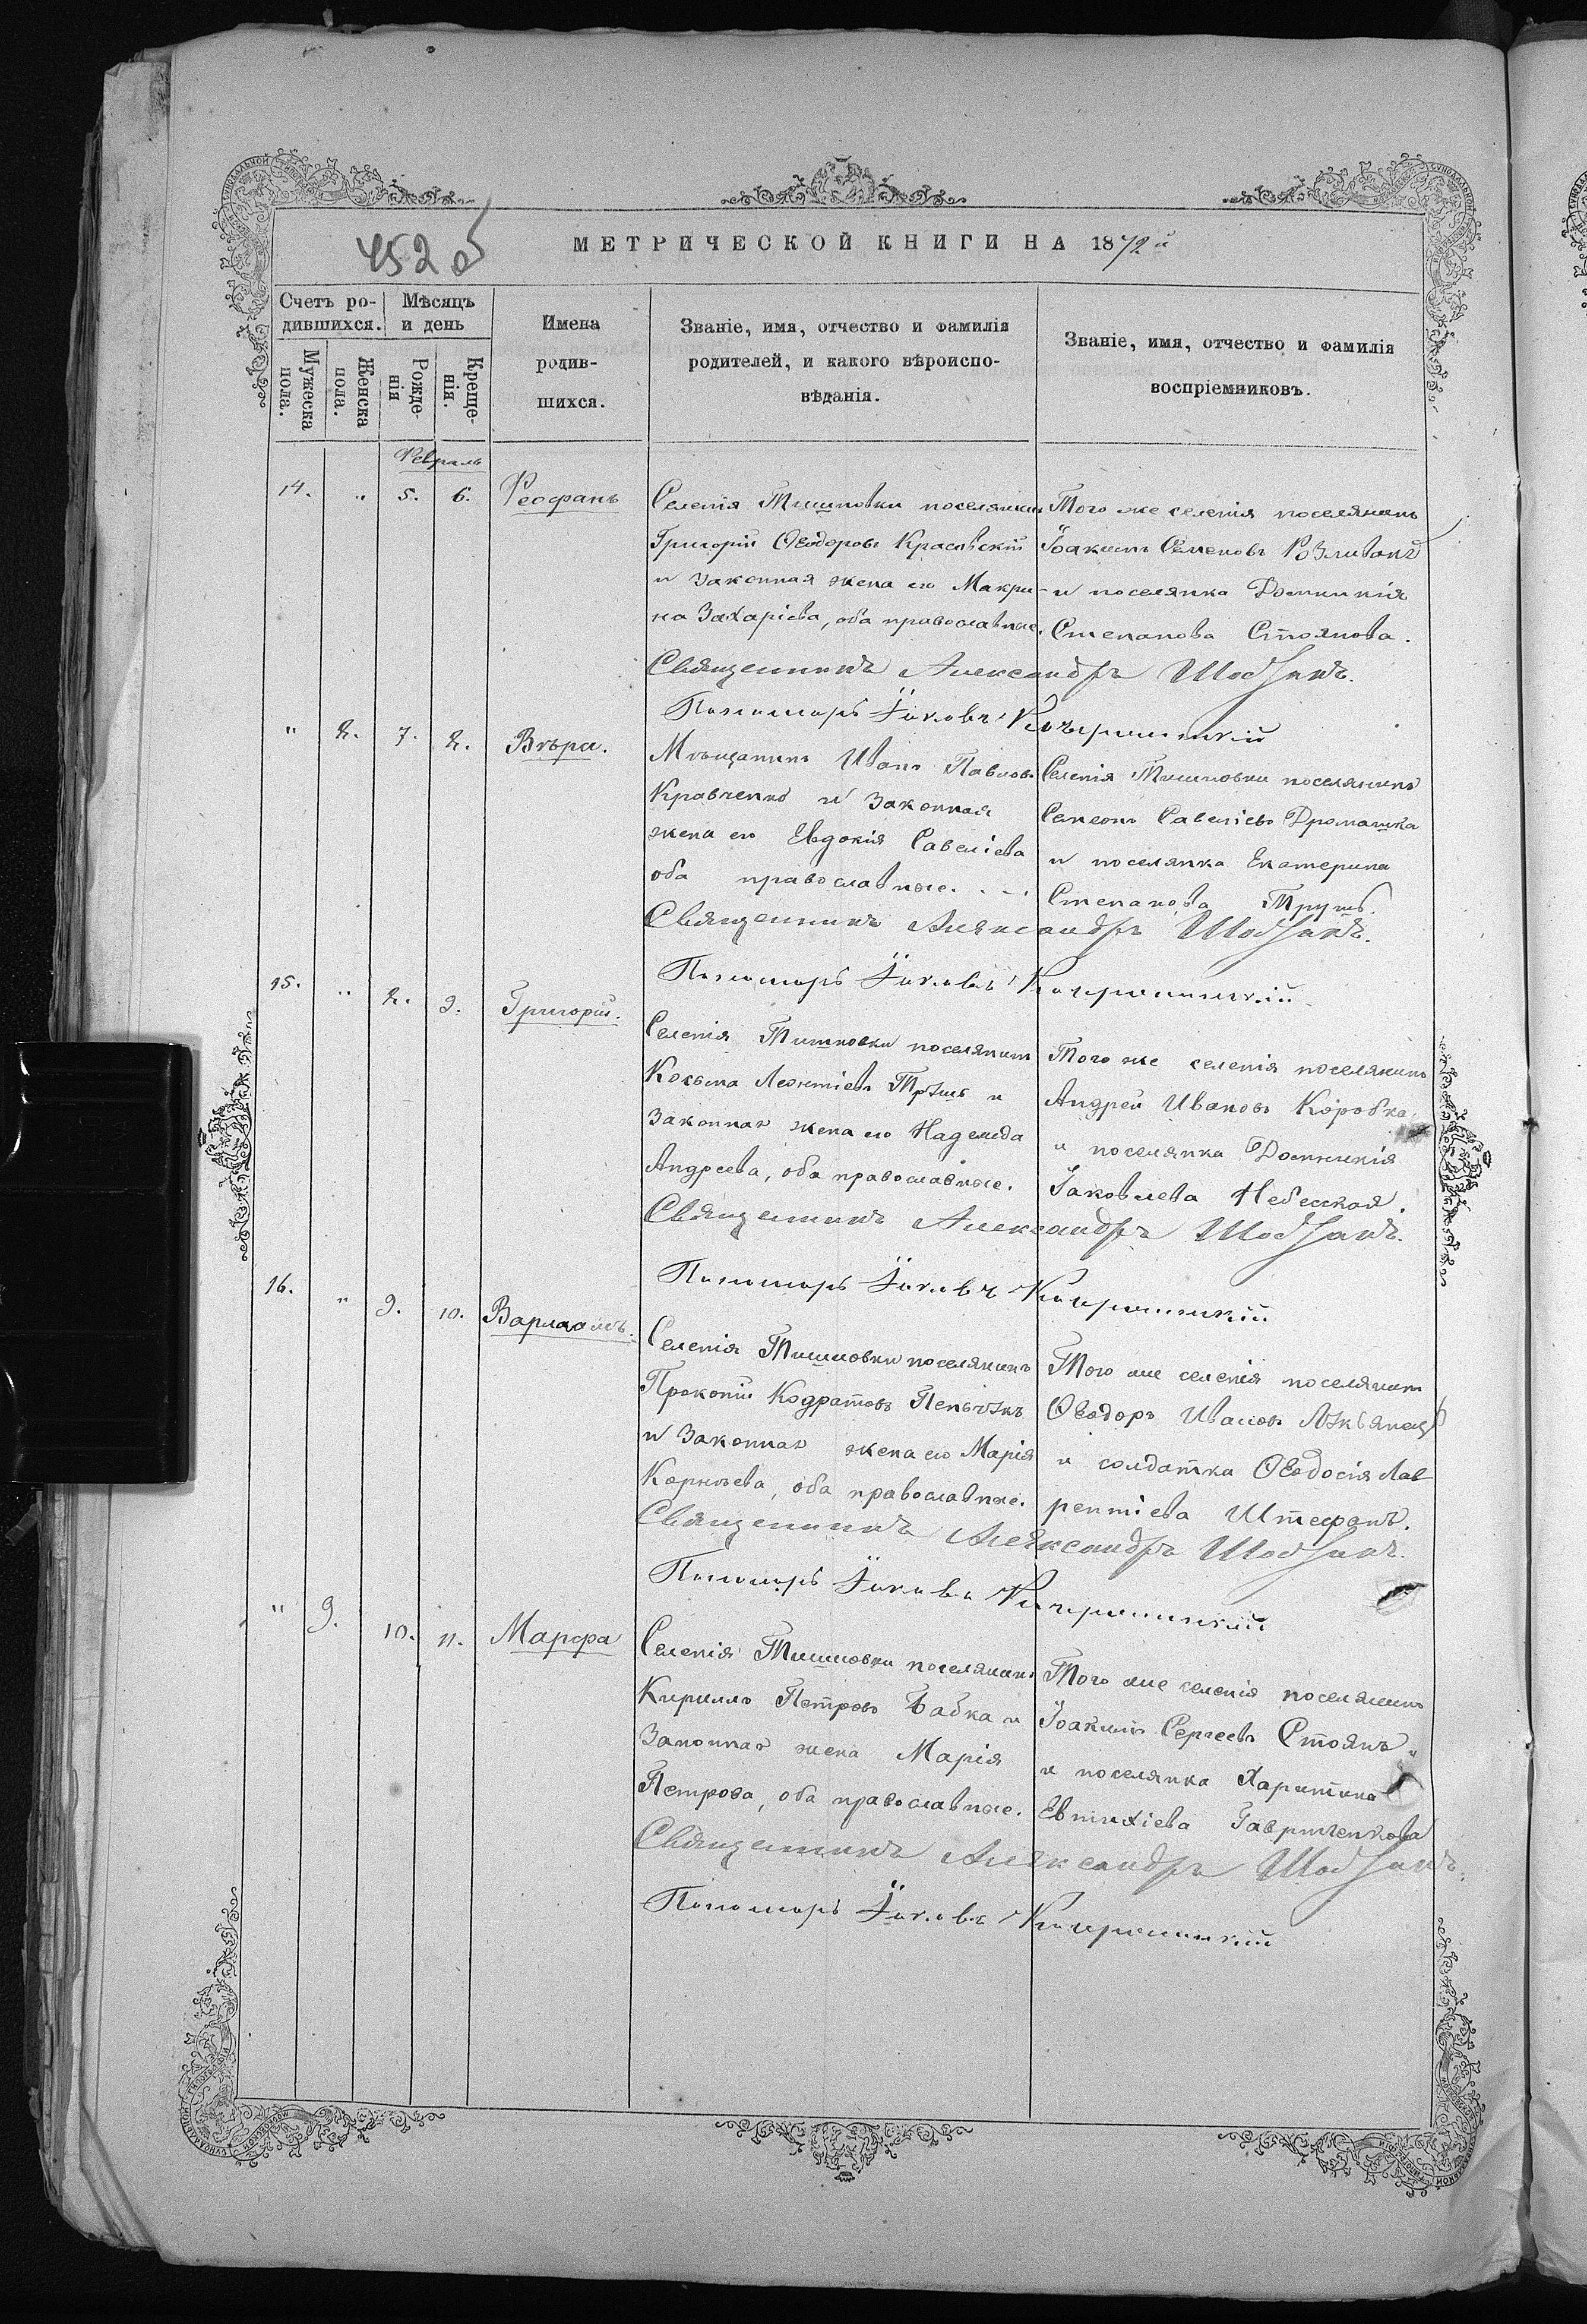 452 об
МЕТРИЧЕСКОЙ КНИГИ НА 1872й
Счетъ ро-
дившихся.
Мѣсяцъ
и день
Мужеска
пола.
Женска
пола.
Рожде-
нія
Креще-
нія.
Имена
родив-
шихся.
Званіе, имя, отчество и фамилія
родителей, и какого вѣроиспо-
вѣданія.
Званіе, имя, отчество и фамилія
воспріемниковъ.
Февраль
14. " 5. 6. Феофанъ
Селенія Тишковки поселянинъ
Григорій Ѳеодоровъ Красовскій
и законная жена его Макри-
на Захаріева, оба православные.
Того же селенія поселянинъ
Іоакимъ Семеновъ
и поселянка Домникія
Степанова Стоянова.
Священникъ Александръ
Пономарь Іаковъ
" 8. 7. 8. Вѣра.
Мѣщанинъ Иванъ Павловъ
Кравченко и законная
жена его Евдокія Савеліева
оба православные.
Селенія Тишковки поселянинъ
Симеонъ Савеліевъ Дромашка
и поселянка Екатерина
Степанова Трушъ.
Священникъ Александръ
Пономарь Іаковъ
15. " 8. 9. Григорій.
Селенія Тишковки поселянинъ
Косьма Леонтіевъ Трушъ и
законная жена его Надежда
Андреева, оба православные.
Того же селенія поселянинъ
Андрей Ивановъ Коробка
и поселянка Домникія
Іаковлева Небесская.
Священникъ Александръ
Пономарь Іаковъ
16. " 9. 10. Варлаамъ.
Селенія Тишковки поселянинъ
Прокопій Кодратовъ
и законная жена его Марія
Корнѣева, оба православные.
Того же селенія поселянинъ
Ѳеодоръ Ивановъ Лукьянецъ
и солдатка Ѳеодосія Лав-
рентіева Штефанъ.
Священникъ Александръ
Пономарь Іаковъ
" 9. 10. 11. Марфа
Селенія Тишковки поселянинъ
Кириллъ Петровъ Бабка и
законная жена Марія
Петрова, оба православные.
Того же селенія поселянинъ
Іоакимъ Сергеевъ Стоянъ
и поселянка Харитина
Евтихіева Гавриленкова
Священникъ Александръ
Пономарь Іаковъ